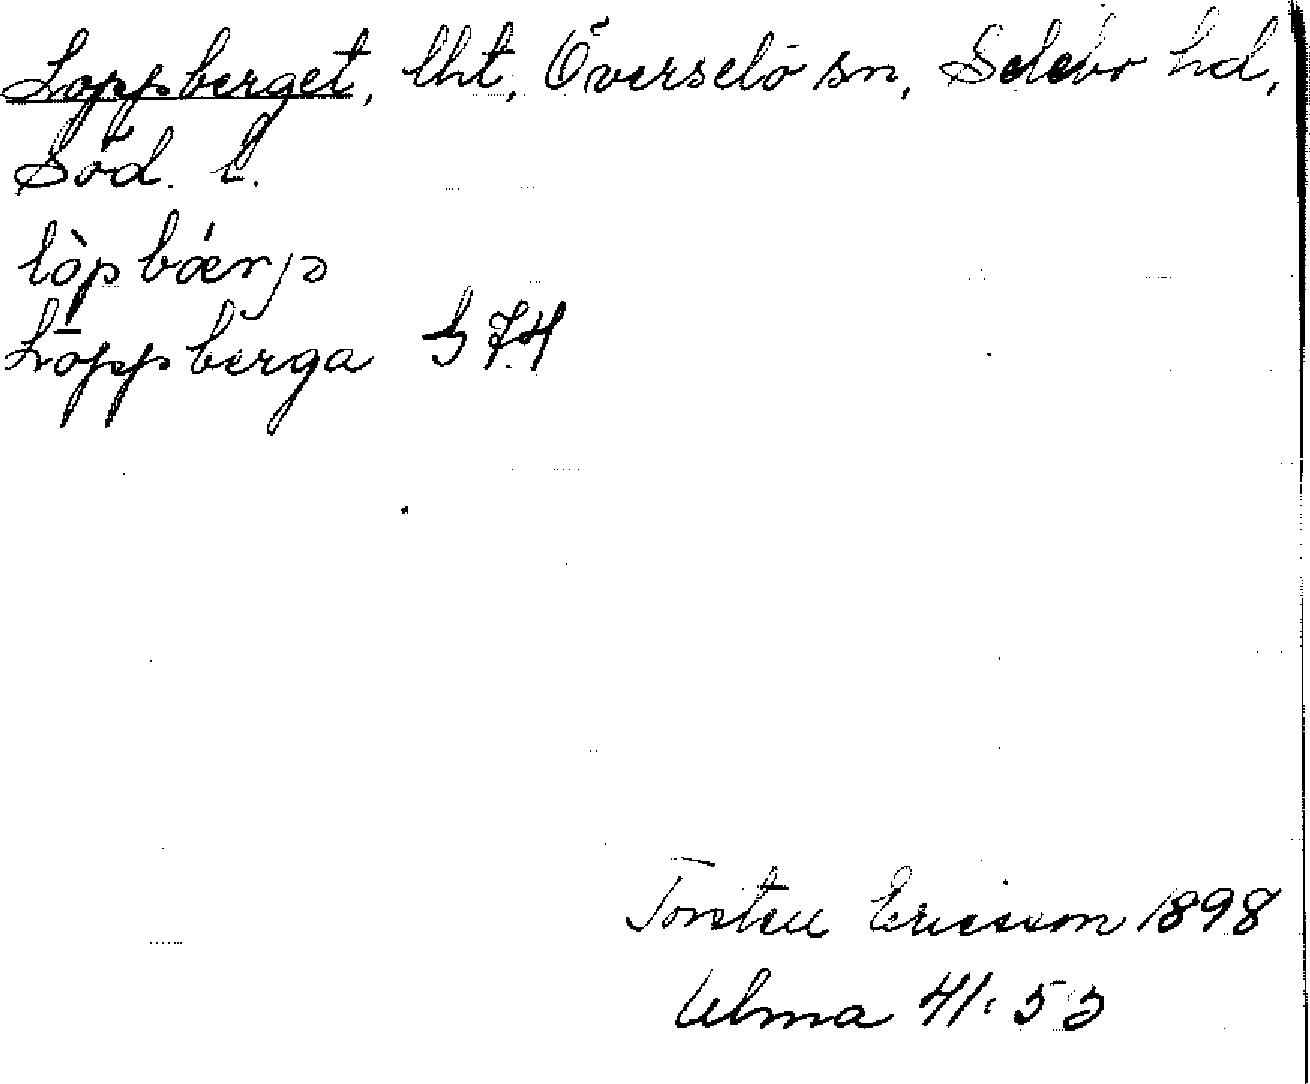 Loppberget, lht, Överselö sn, Selebo hd,
Söd. l.
Löppberga S 74
Torsten Ericsson 1898
Ulma 41:53